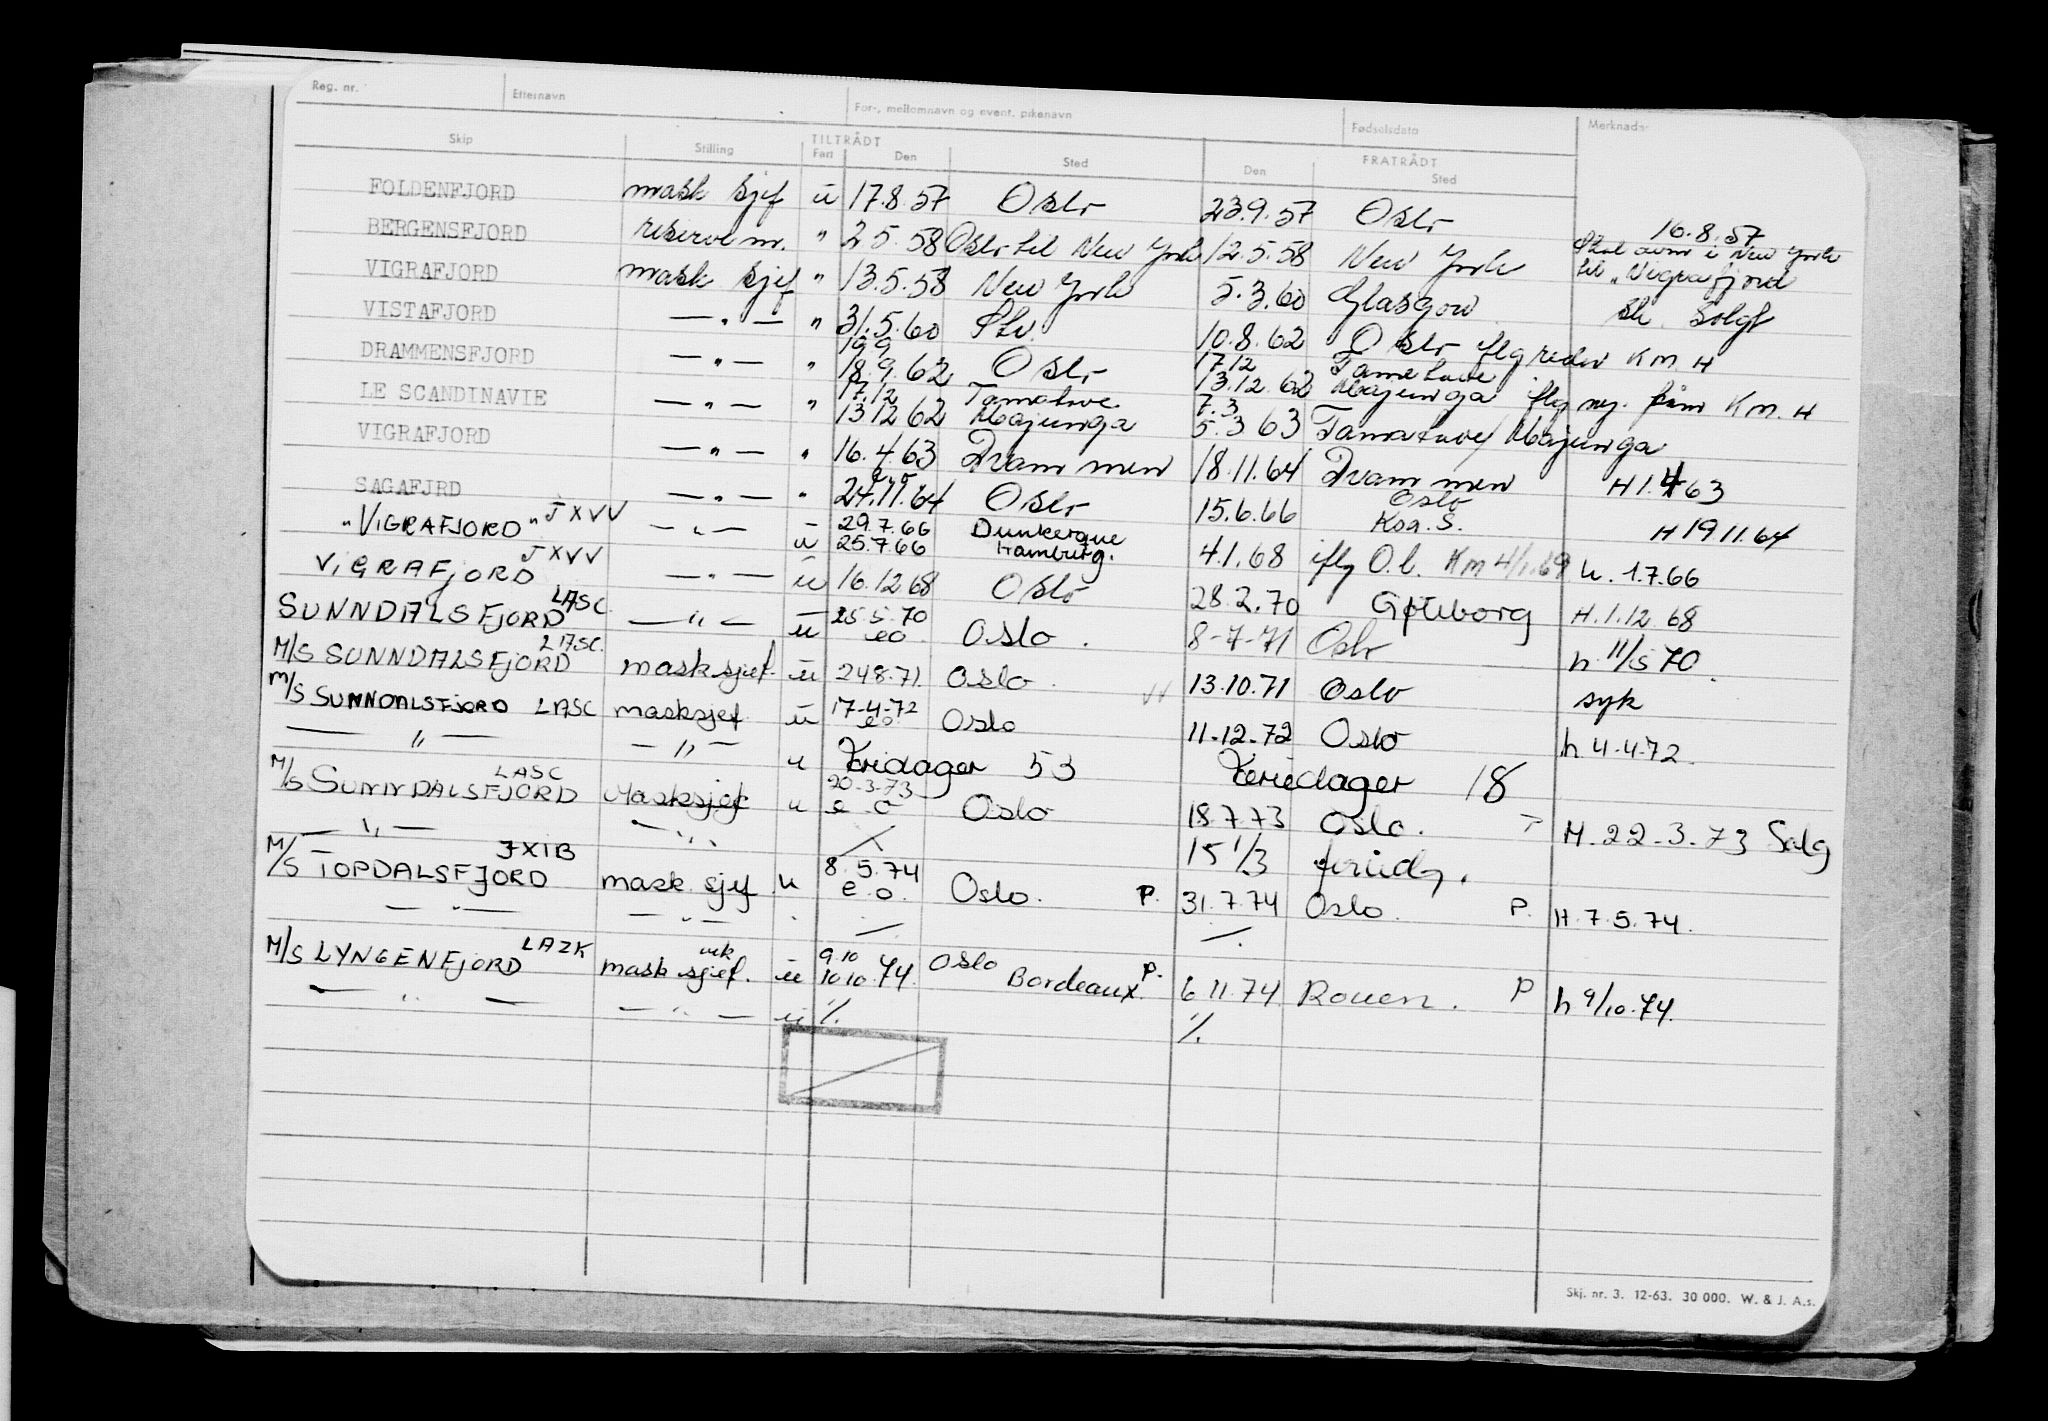 Reg. nr. Etternavn For-, mellomnavn og event. pikenavn Fødselsdato Merknader
TILTRÅDT FRATRÅDT
Skip Stilling Fart Den Sted Den Sted
FOLDENFJORD mask sjef u 17.8.57 Oslo 23.9.57 Oslo 16.8.57
BERGENSFJORD reserve m. " 2.5.58 Oslo til New York 12.5.58 New York Skal over i New York
VIGRAFJORD mask sjef " 13.5.58 New York 5.3.60 Glasgow til "Vigrafjord
VISTAFJORD — " — " 31.5.60 10.8.62 Oslo iflg reder Km H sk. Solgt
19.9 17.12 Tamatave
DRAMMENSFJORD — " — " 18.9.62 Oslo 13.12.62 Majunga iflg ny. Km. H
17.12 Tamatave 7.3
LE SCANDINAVIE — " — " 13 12 62 Majunga 5.3 63 Tamatave/Majunga
VIGRAFJORD — " — " 16.4.63 Drammen 18.11.64 Drammen H 1.4 63
SAGAFJRD — " — " 24.11.64 Oslo 15.6.66 Oslo H 19 11.64
29.7.66 Dunkerque Koa. S.
"VIGRAFJORD" JXVV — " — u 25.7.66 Hamburg. 4.1.68 iflg O.l. Km 4/1.69 h. 1.7.66
VIGRAFJORD JXVV — " — u 16.12.68 Oslo 28.2.70 Gøteborg H.1.12.68
25.5.70
SUNNDALSFJORD LASC — " — u eo. Oslo. 8-7-71 Oslo h 11/5 70.
M/S SUNNDALSFJORD LASC. masksjef u 24.8.71 Oslo. 13.10.71 Oslo syk
17-4-72
M/S SUNNDALSFJORD LASC masksjef u eo Oslo 11-12.72 Oslo h 4.4.72.
— " — — " — u Feridager 53 Feriedager 18
20-3-73
M/S SUNNDALSFJORD LASC Masksjef u e.o Oslo 18.7.73 Oslo. H.22-3.73 Salg
— " — — " 15 1/3 feried.
8.5.74
M/S TOPDALSFJORD JXIB mask. sjef u e.o. Oslo. P. 31.7.74 Oslo. P. H.7.5.74.
— " — — " —
vik 9.10 Oslo
M/S LYNGENFJORD LAZK mask sjef. u 10 10.74. Bordeaux. P. 6 11.74 Rouen. P h 9/10.74.
— " — — " — u %. %.
Skj. nr. 3. 12-63. 30 000. W. & J. A.s.